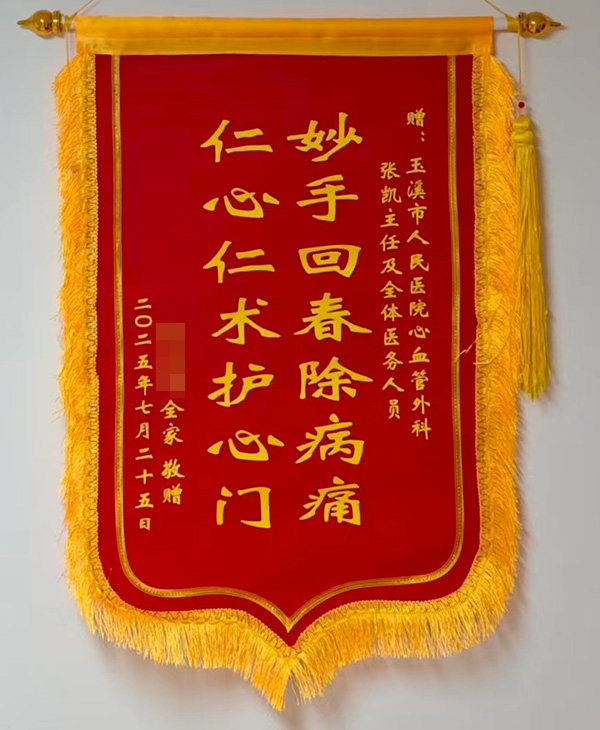 赠：玉溪市人民医院心血管外科
张凯主任及全体医务人员
妙手回春除病痛
仁心仁术护心门
全家 敬赠
二〇二五年七月二十五日